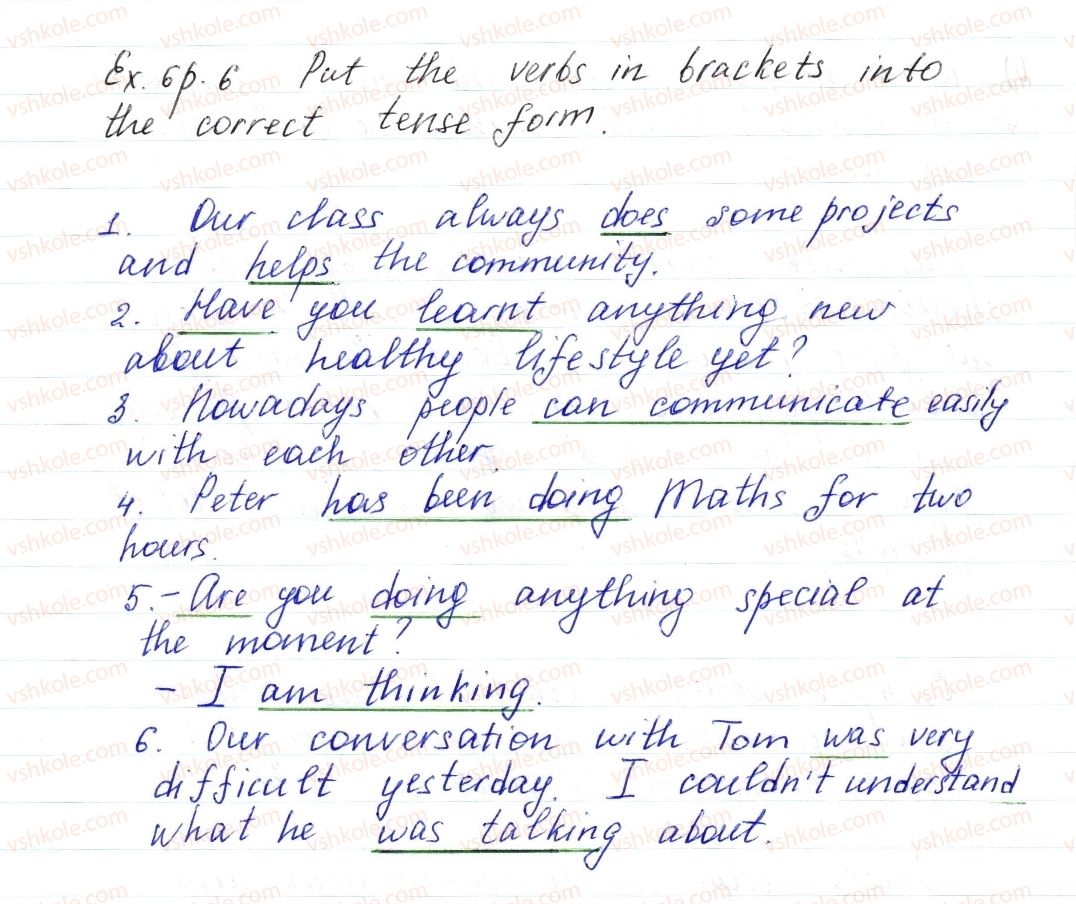 Ex. 6 p. 6 Put the verbs in brackets into
the correct tense form.
1. Our class always does some projects
and helps the community.
2. Have you learnt anything new
about healthy lifestyle yet?
3. Nowadays people can communicate easily
with each other.
4. Peter has been doing Maths for two
hours.
5. - Are you doing anything special at
the moment?
- I am thinking.
6. Our conversation with Tom was very
difficult yesterday. I couldn't understand
what he was talking about.